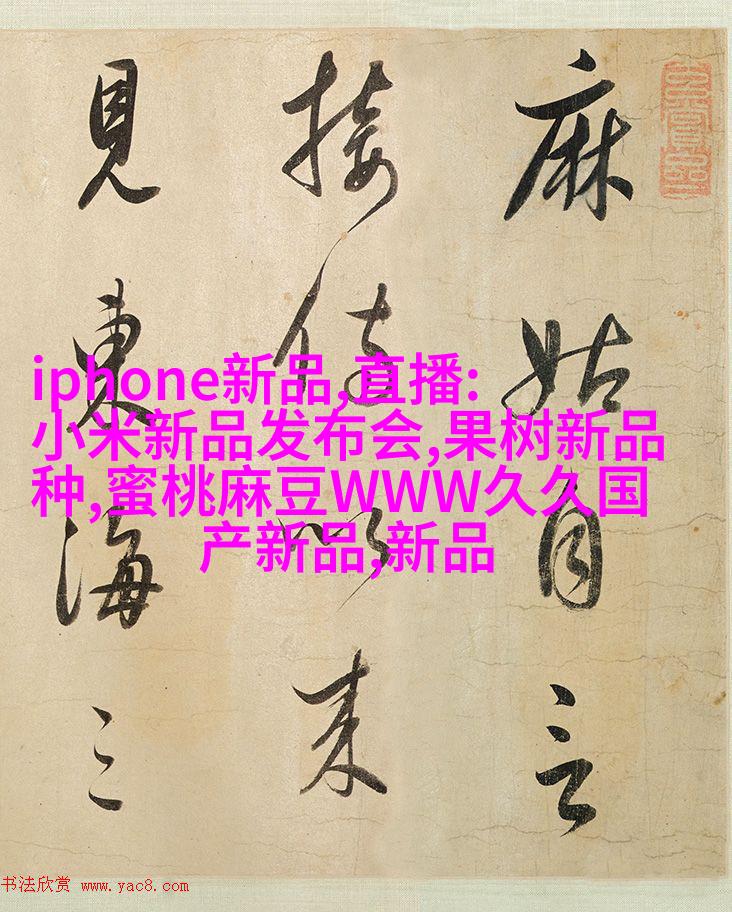 麻姑自言
接侍以来
見東海三
iphone新品,直播:
小米新品发布会,果树新品
种,蜜桃麻豆WWW久久国
产新品,新品
书法欣赏 www.yac8.com